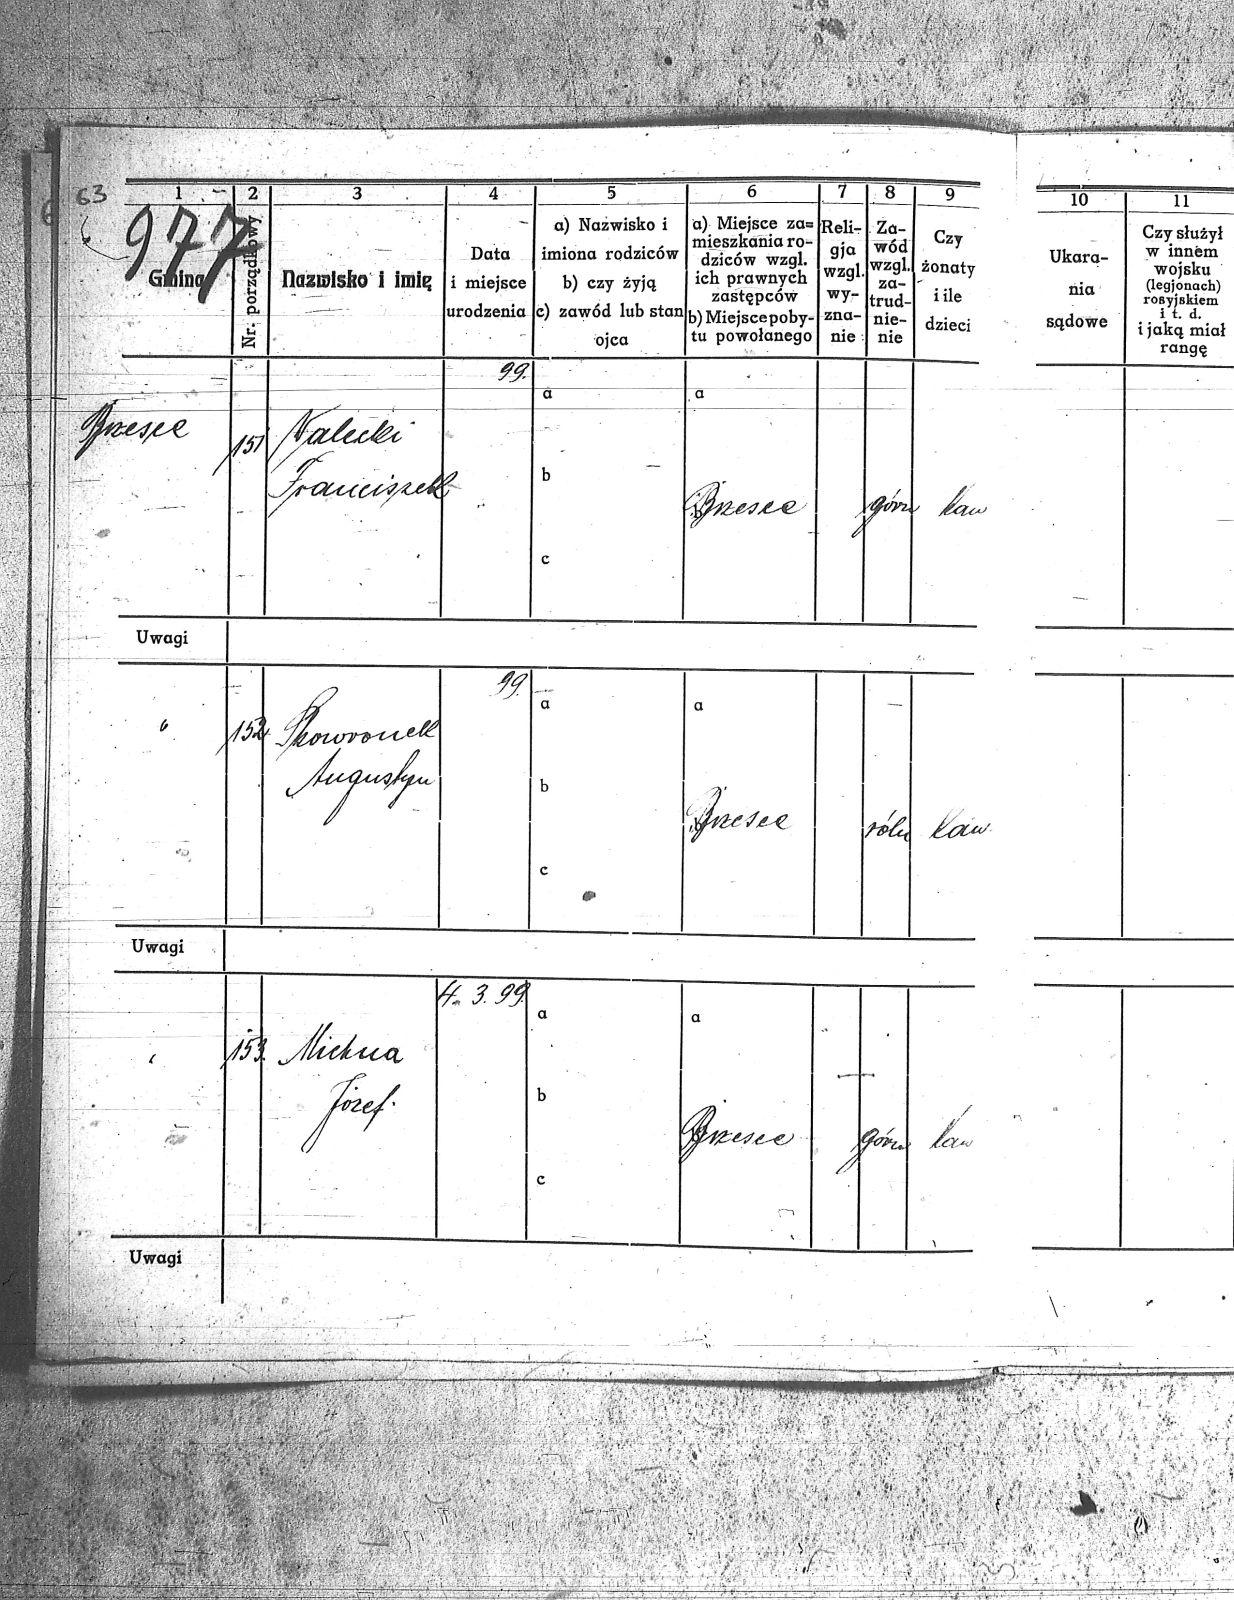 63
977
1 2 3 4 5 6 7 8 9 10 11
Gmina
Nr. porządkowy
Nazwisko i imię
Data
i miejsce
urodzenia
a) Nazwisko i
imiona rodziców
b) czy żyją
c) zawód lub stan
ojca
a) Miejsce za=
mieszkania ro-
dziców wzgl.
ich prawnych
zastępców
b) Miejsce poby-
tu powołanego
Reli-
gja
wzgl.
wy-
zna-
nie
Za-
wód
wzgl.
za-
trud-
nie-
nie
Czy
żonaty
i ile
dzieci
Ukara-
nia
sądowe
Czy służył
w innem
wojsku
(legjonach)
rosyjskiem
i t. d.
i jaką miał
rangę
99.
a a
Brzesce 151 Walecki
Franciszek
b
Brzesce górn kaw
c
Uwagi
99.
a a
" 152 Skowronek
Augustyn
b
Brzesce róln kaw
c
Uwagi
4. 3. 99.
a a
" 153. Michna
Józef.
b
Brzesce górn kaw
c
Uwagi